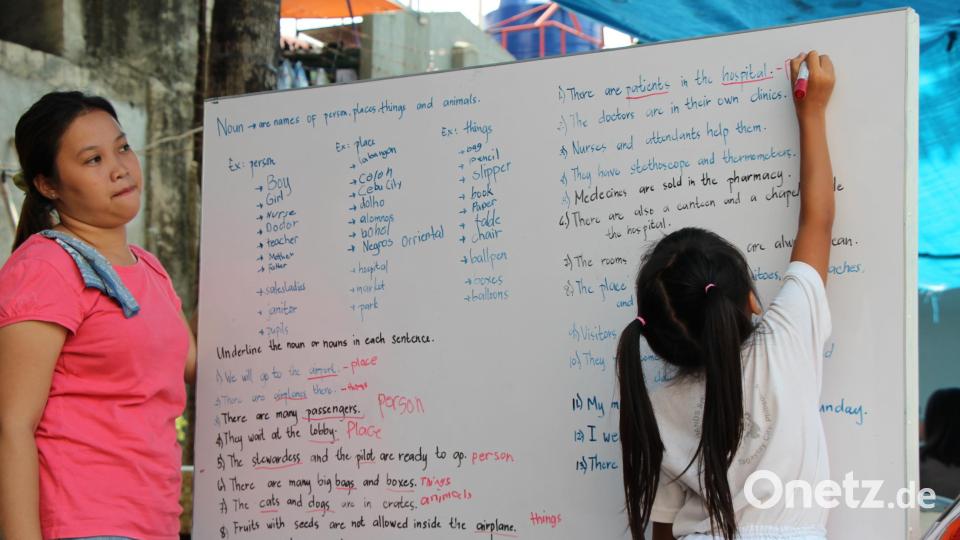 Noun → are names of person, places, things and animals.
Ex: person
→ Boy
→ Girl
→ Nurse
→ Doctor
→ teacher
→ Mother
→ Father
→ salesladies
→ janitor
→ pupils
Ex: place
→ Coloh
→ Cebu City
→ bohol
→ Negros Orriental
→ hospital
→ market
→ park
Ex: things
→ bag
→ pencil
→ slipper
→ book
→ Paper
→ table
→ chair
→ ballpen
→ boxes
→ balloons
Underline the noun or nouns in each sentence.
1) We will go to the - place
2) There are airplanes there. - things
3) There are many passengers. person
4) They wait at the lobby. Place
5) The stewardess and the pilot are ready to go. person
6) There are many big bags and boxes. Things
7) The cats and dogs are in crates. animals
8) Fruits with seeds are not allowed inside the airplane. things
1) There are patients in the hospital. -
2) The doctors are in their own clinics.
3) Nurses and attendants help them.
4) They have stethoscope and thermometers.
5) Medecines are sold in the pharmacy.
6) There are also a canteen and a chapel
the hospital.
7) The rooms are
8) The place
and
9) Visitors
10) They
11) My unday.
12) I we
13) There
Onetz.de